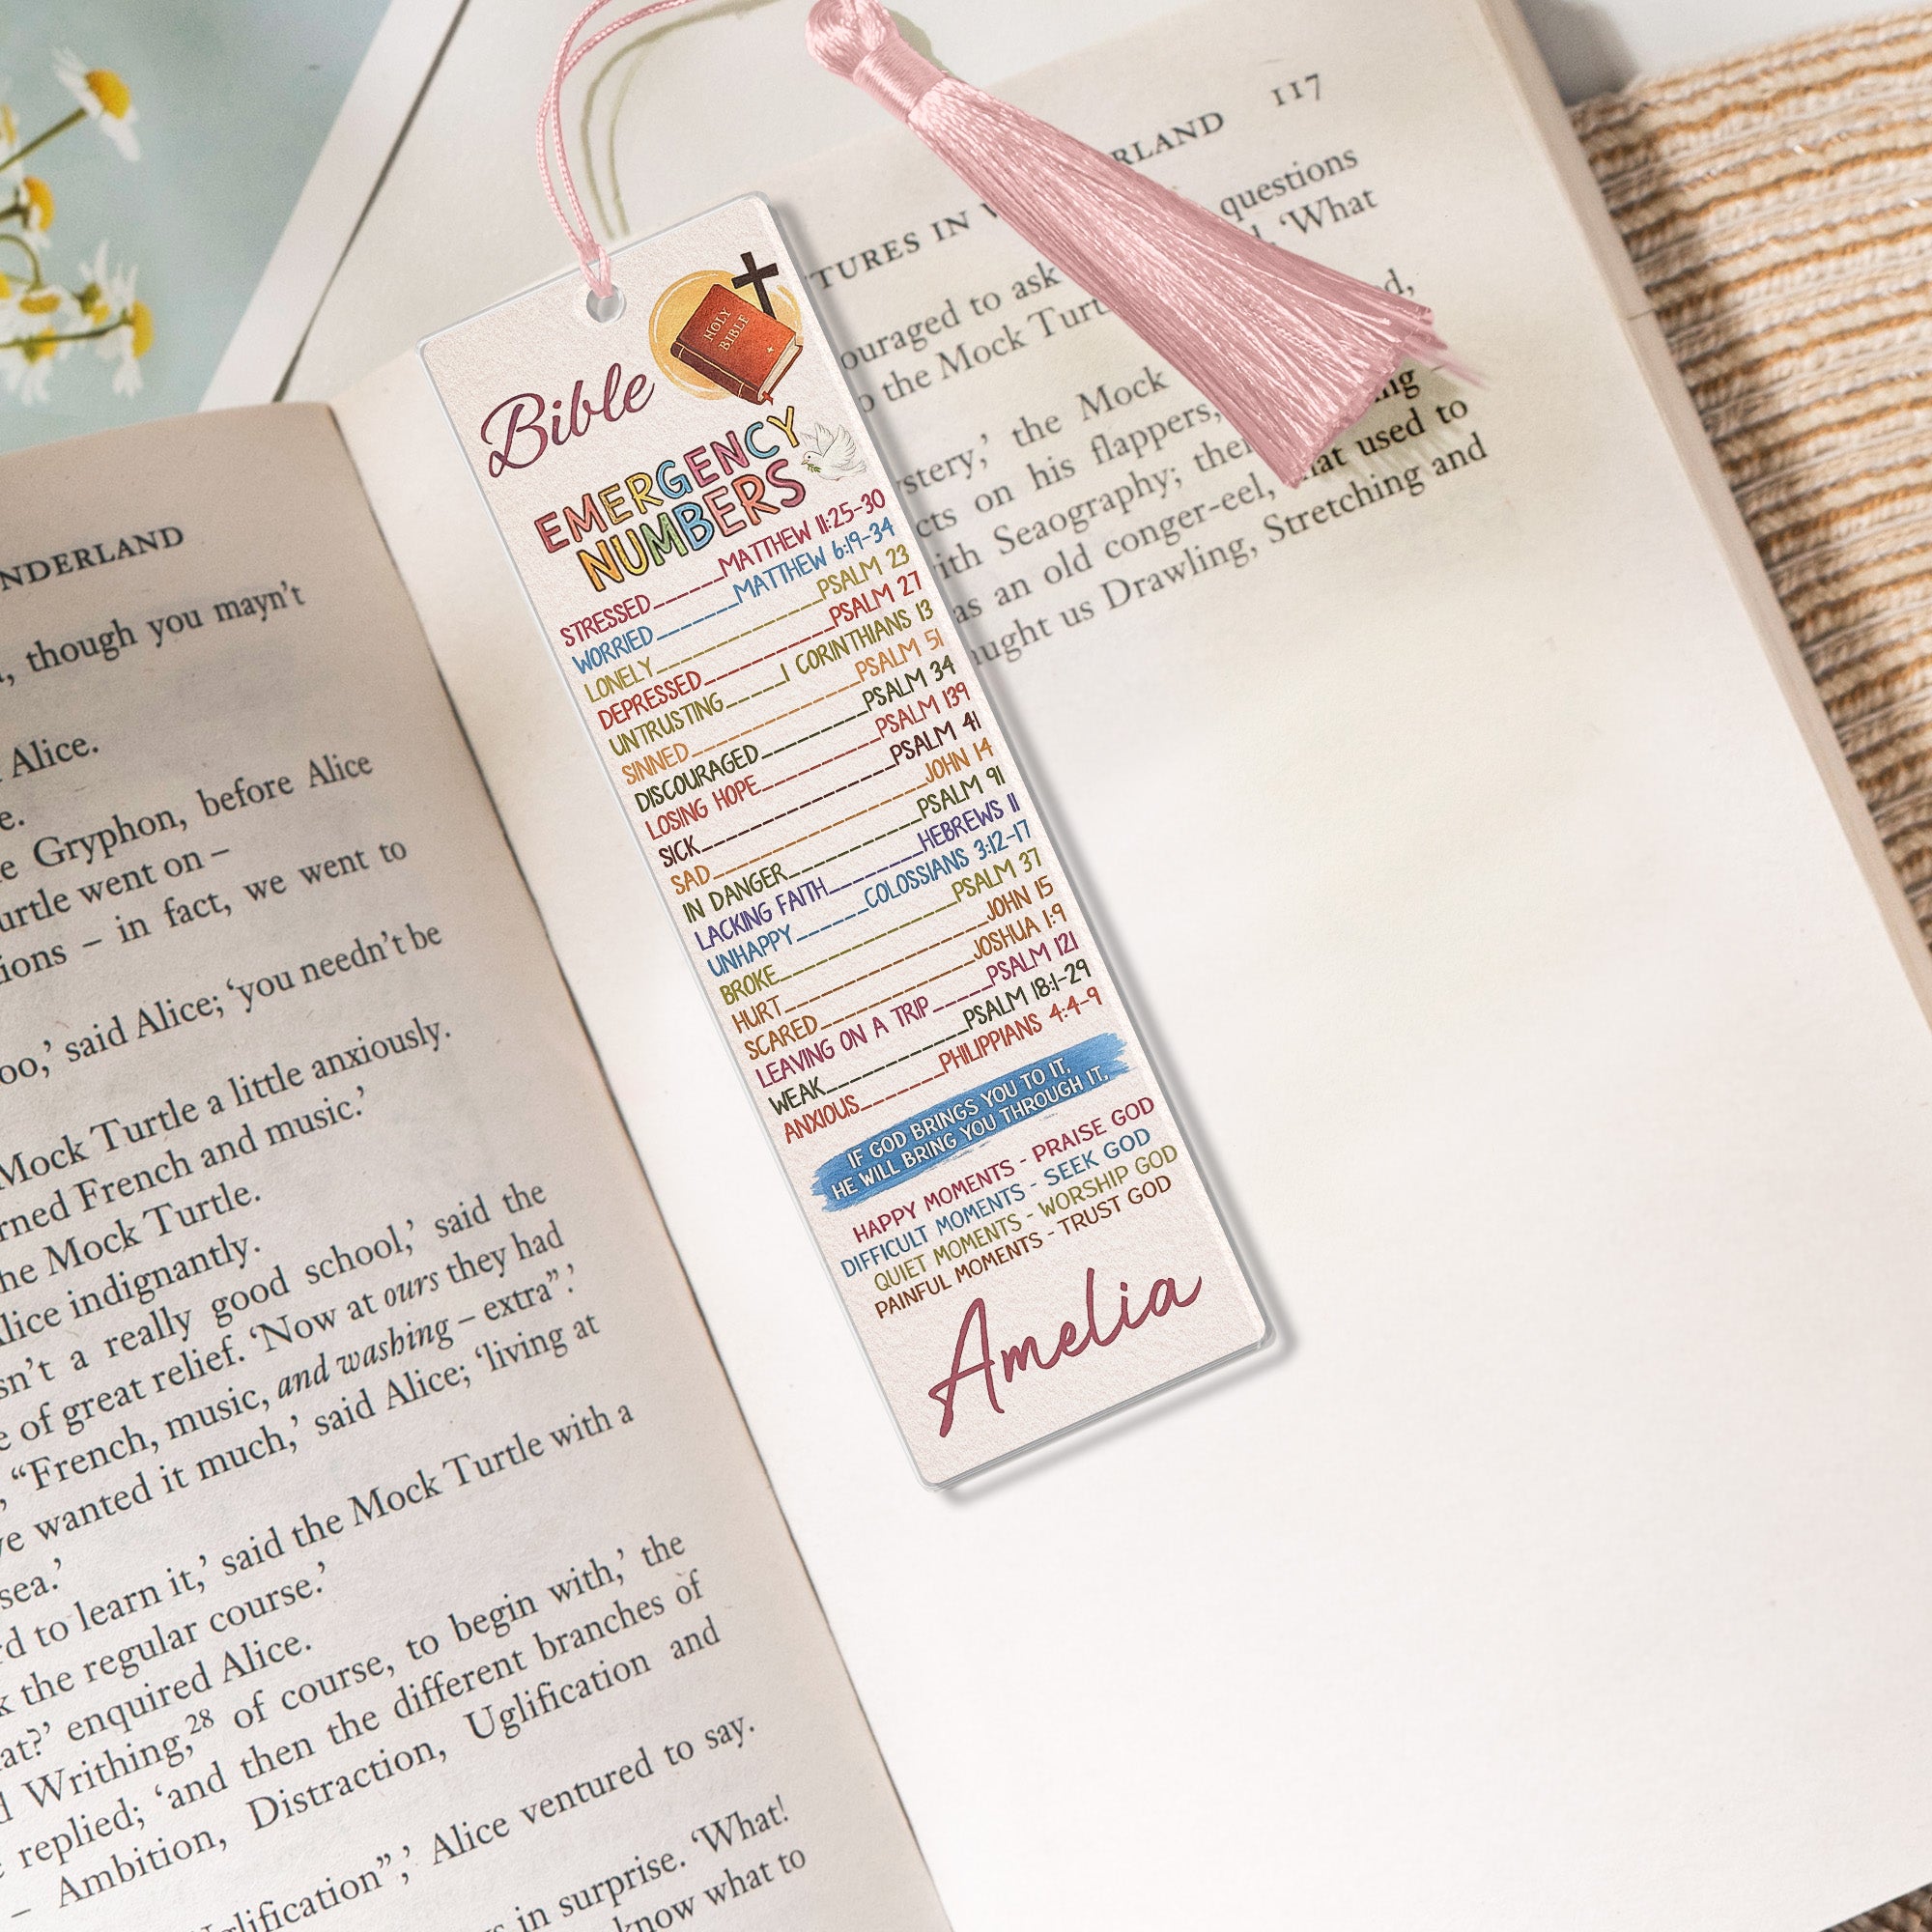 NDERLAND
, though you mayn't
Alice.
e.
e Gryphon, before Alice
urtle went on –
ions – in fact, we went to
oo,' said Alice; 'you needn't be
Mock Turtle a little anxiously.
rned French and music.'
he Mock Turtle.
lice indignantly.
sn't a really good school,' said the
e of great relief. 'Now at ours they had
, "French, music, and washing – extra".'
ve wanted it much,' said Alice; 'living at
sea.'
rd to learn it,' said the Mock Turtle with a
k the regular course.'
at?' enquired Alice.
d Writhing,28 of course, to begin with,' the
replied; 'and then the different branches of
– Ambition, Distraction, Uglification and
glification",' Alice ventured to say.
s in surprise. 'What!
know what to
TURES IN W RLAND 117
questions
ouraged to ask . 'What
o the Mock Turt d,
ystery,' the Mock ng –
cts on his flappers, at used to
ith Seaography; the Stretching and
as an old conger-eel,
aught us Drawling,
HOLY
BIBLE
Bible
EMERGENCY
NUMBERS
STRESSED______MATTHEW 11:25-30
WORRIED_______MATTHEW 6:19-34
LONELY______________PSALM 23
DEPRESSED___________PSALM 27
UNTRUSTING_____1 CORINTHIANS 13
SINNED______________PSALM 51
DISCOURAGED_________PSALM 34
LOSING HOPE__________PSALM 139
SICK________________PSALM 41
SAD__________________JOHN 14
IN DANGER___________PSALM 91
LACKING FAITH________HEBREWS 11
UNHAPPY______COLOSSIANS 3:12-17
BROKE_______________PSALM 37
HURT_________________JOHN 15
SCARED_____________JOSHUA 1:9
LEAVING ON A TRIP_____PSALM 121
WEAK____________PSALM 18:1-29
ANXIOUS_______PHILIPPIANS 4:4-9
IF GOD BRINGS YOU TO IT,
HE WILL BRING YOU THROUGH IT,
HAPPY MOMENTS - PRAISE GOD
DIFFICULT MOMENTS - SEEK GOD
QUIET MOMENTS - WORSHIP GOD
PAINFUL MOMENTS - TRUST GOD
Amelia